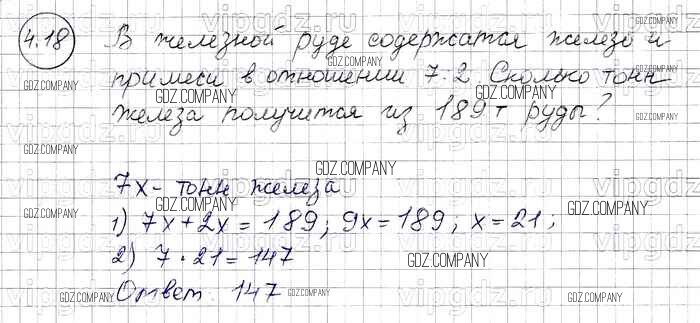 4.18 В железной руде содержатся железо и
примеси в отношении 7:2. Сколько тонн
железа получится из 189 т руды?
7x - тонн железа
1) 7x + 2x = 189; 9x = 189; x = 21;
2) 7 · 21 = 147
Ответ. 147
GDZ.COMPANY
vipgdz.ru